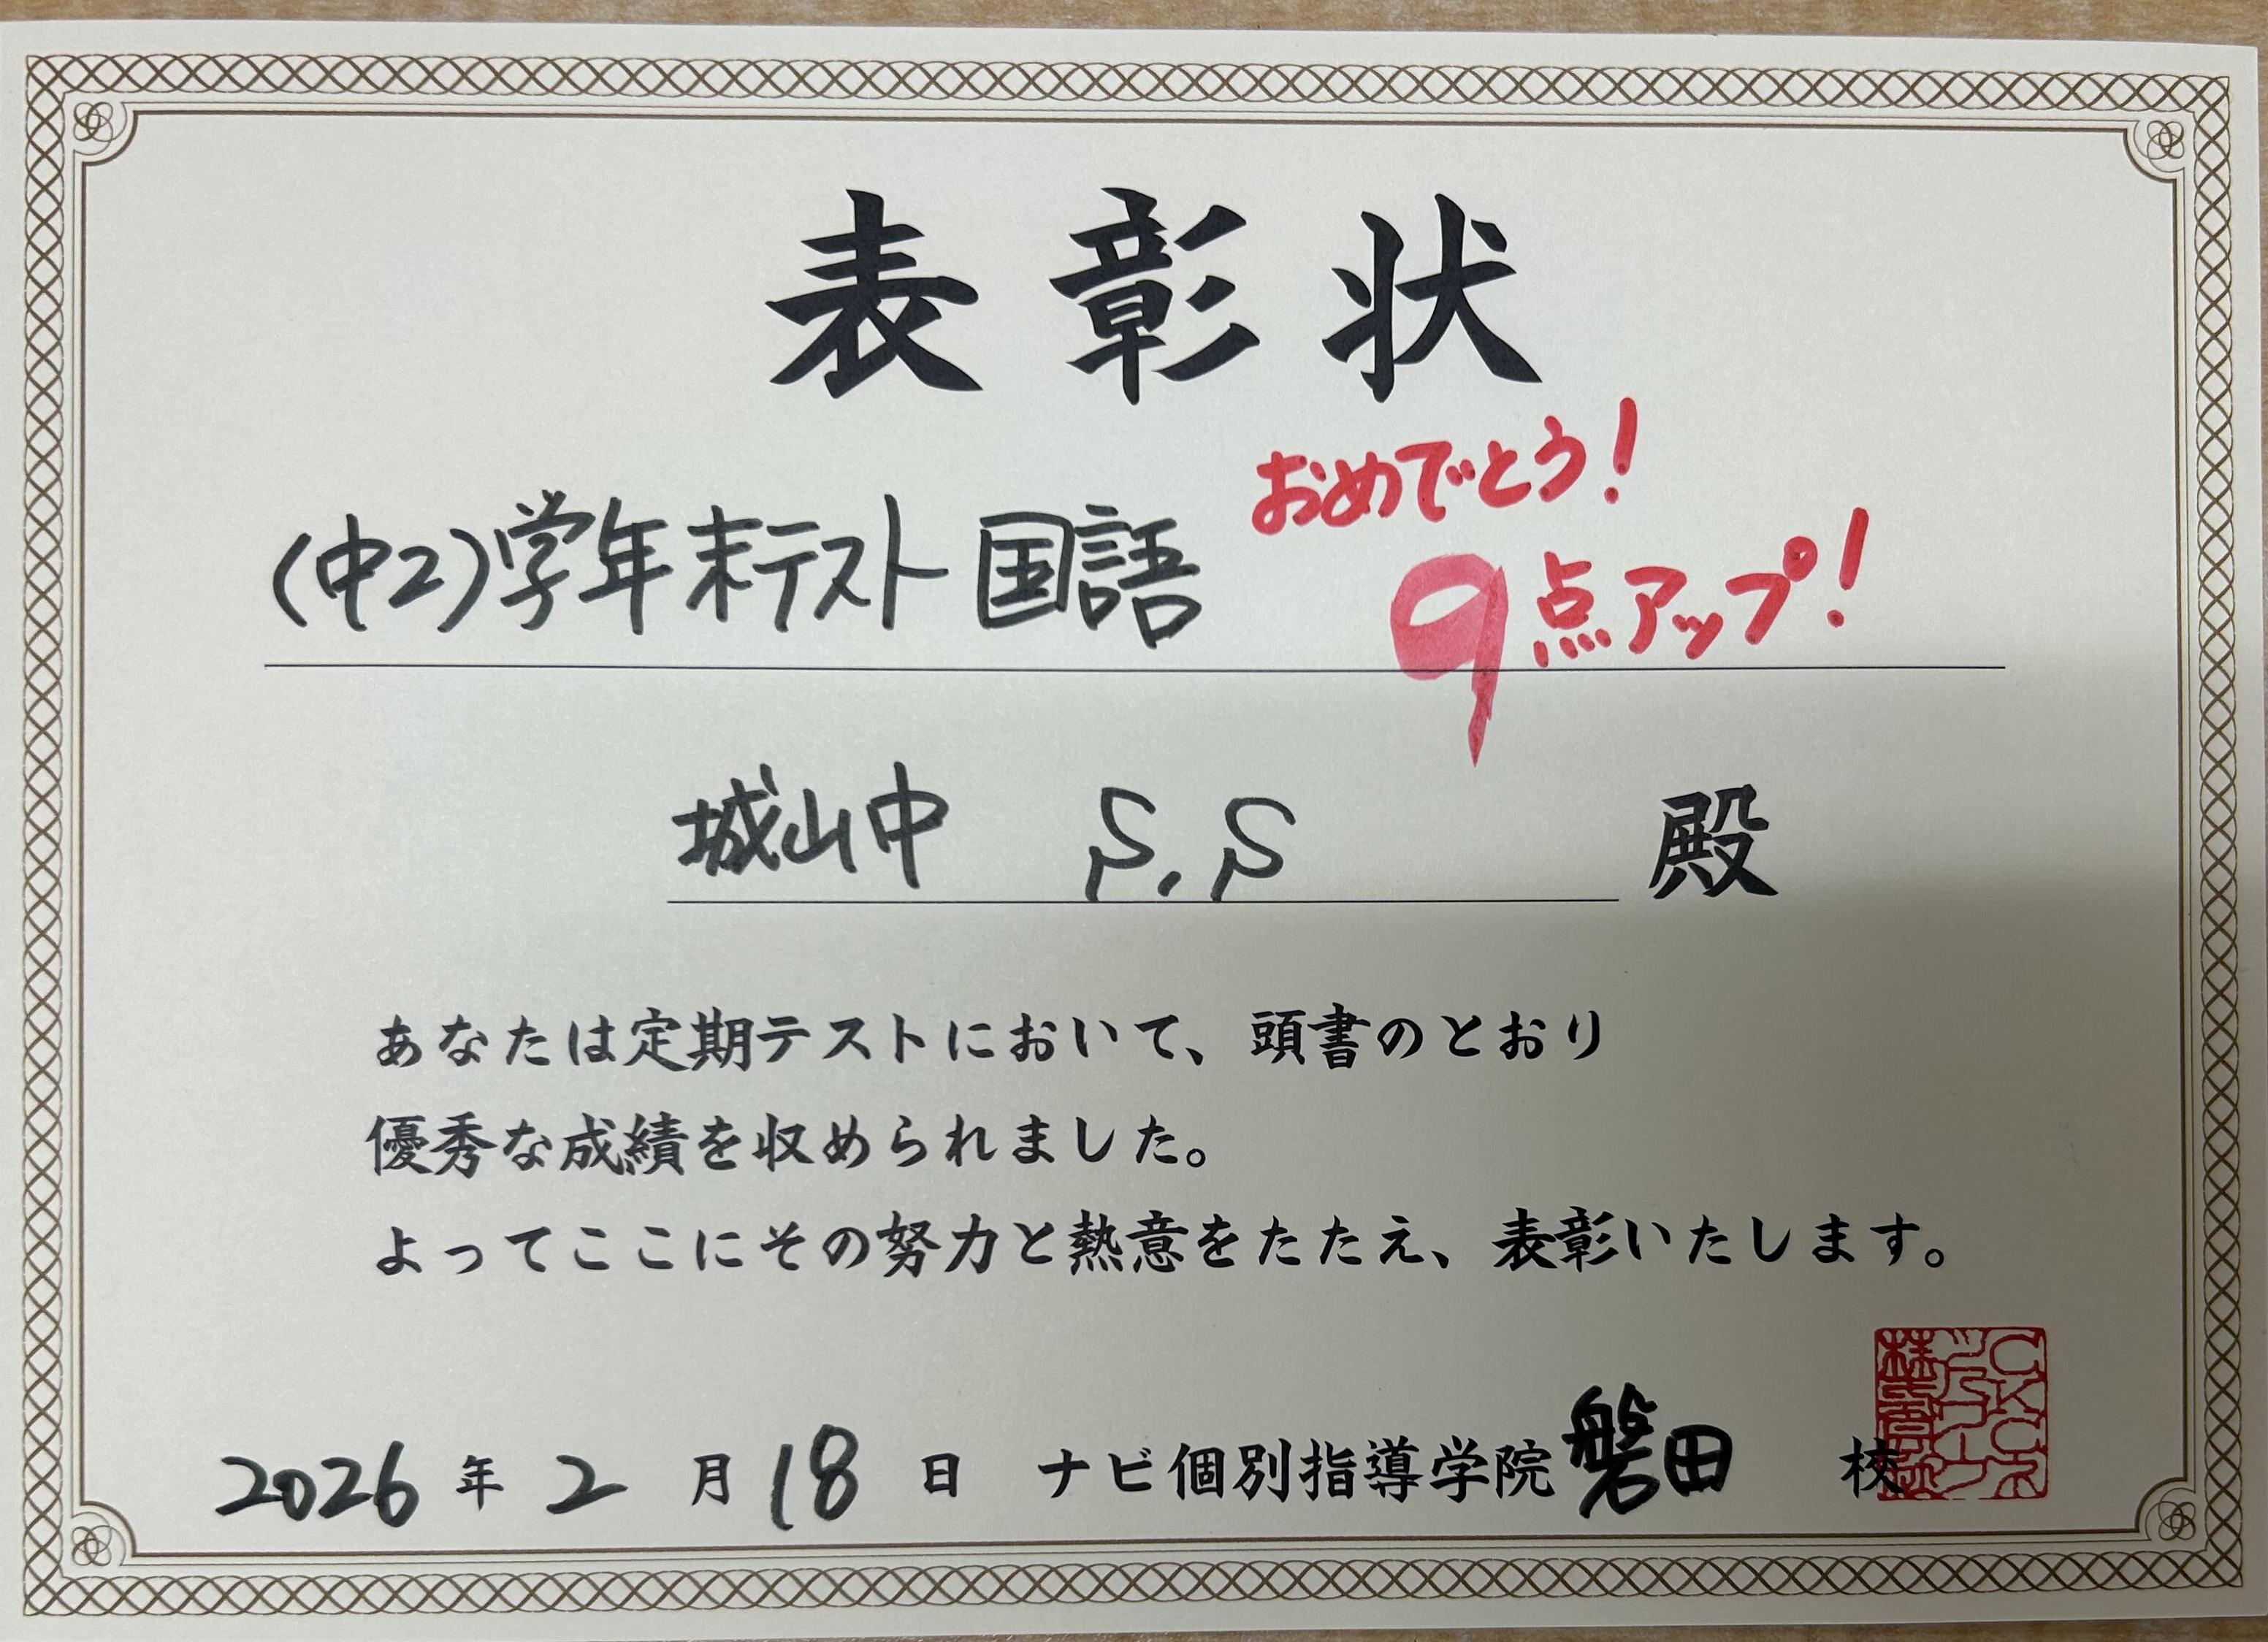 表彰状
おめでとう!
(中2)学年末テスト 国語
9点アップ!
城山中 S.S 殿
あなたは定期テストにおいて、頭書のとおり
優秀な成績を収められました。
よってここにその努力と熱意をたたえ、表彰いたします。
2026年2月18日 ナビ個別指導学院磐田校